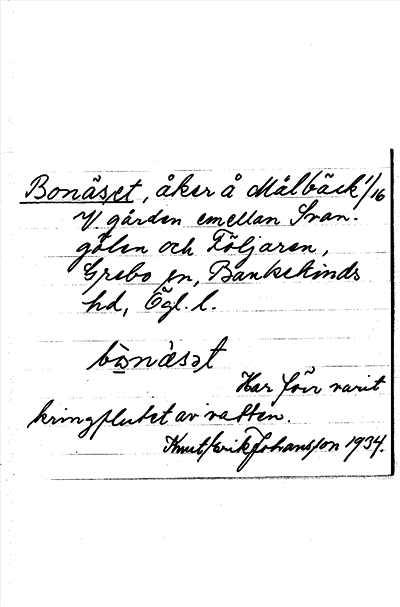 Bonäset, åker å Målbäck 1/16
V gården emellan Svan-
gölen och Följaren,
Grebo sn, Bankekinds
hd, Ögl. l.
bònä̀sət
Har förr varit
kringflutet av vatten.
Knut Erik Johansson 1934.